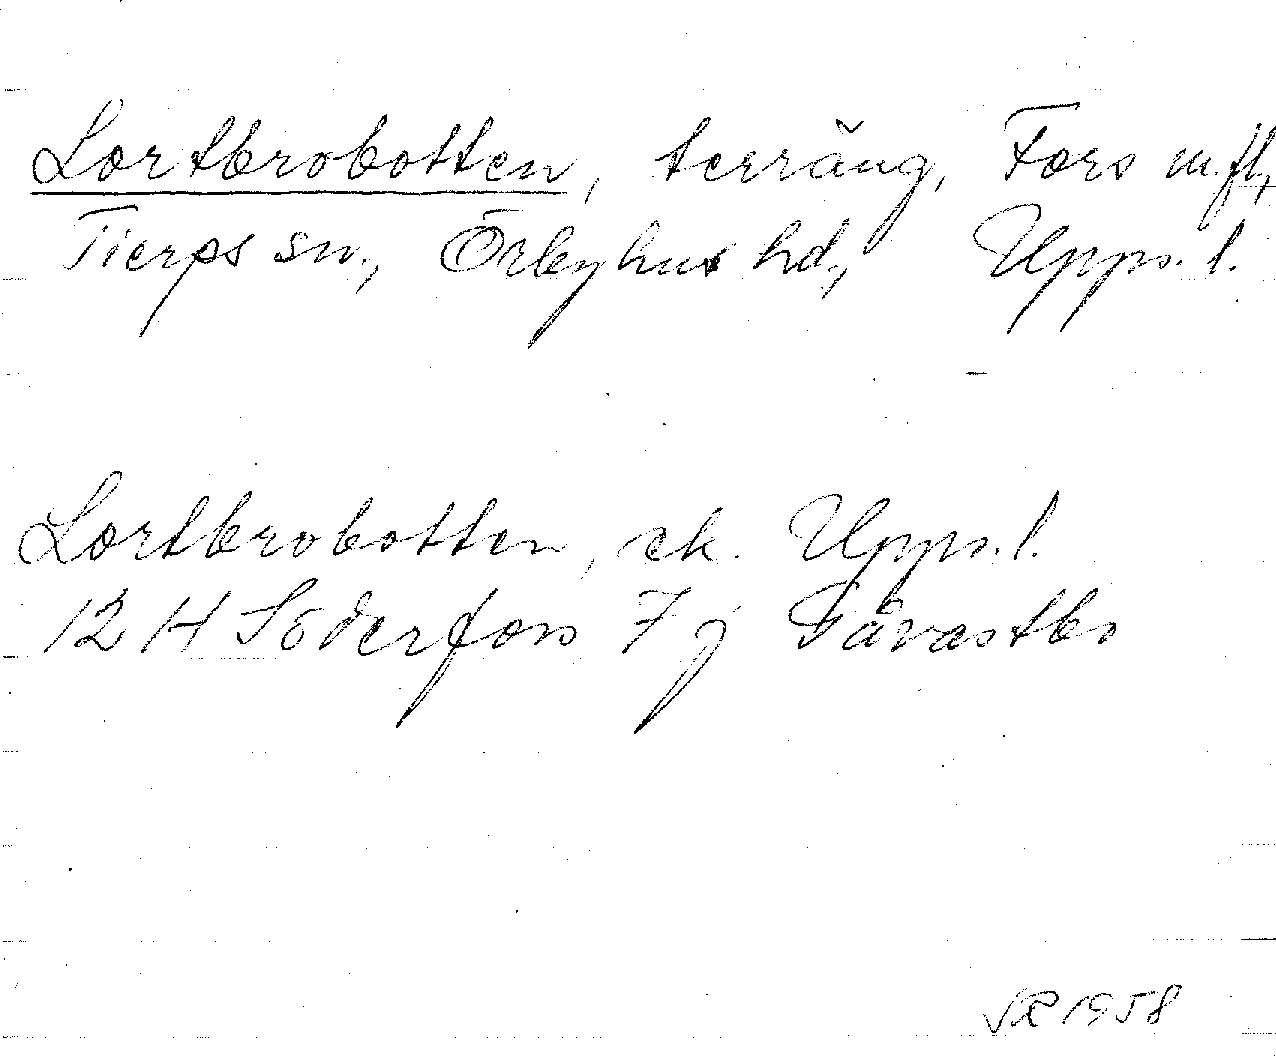 Lortbrobotten, terräng, Fors m.fl.,
Tierps sn., Örbyhus hd., Upps. l.
Lortbrobotten, ek. Upps. l.
12 H Söderfors 7 j Gåvastbo
1958